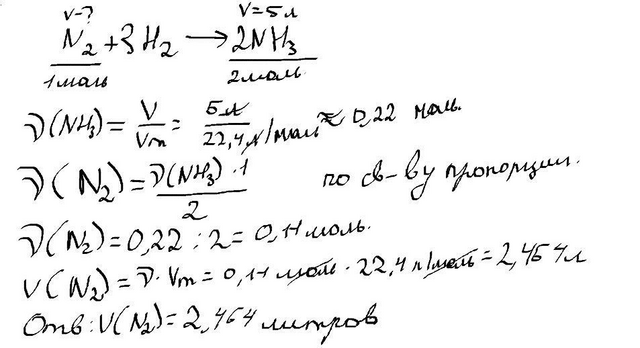 V-? V=5 л
N₂+3H₂ → 2NH₃
1моль 2моль
ν(NH₃)= V/Vm = 5 л/22,4 л/моль ≈ 0,22 моль.
ν(N₂)= ν(NH₃)·1/2 по св-ву пропорции.
ν(N₂)=0,22 : 2= 0,11 моль.
V(N₂)=ν·Vm= 0,11 моль · 22,4 л/моль = 2,464л
Отв: V(N₂)= 2,464 литров